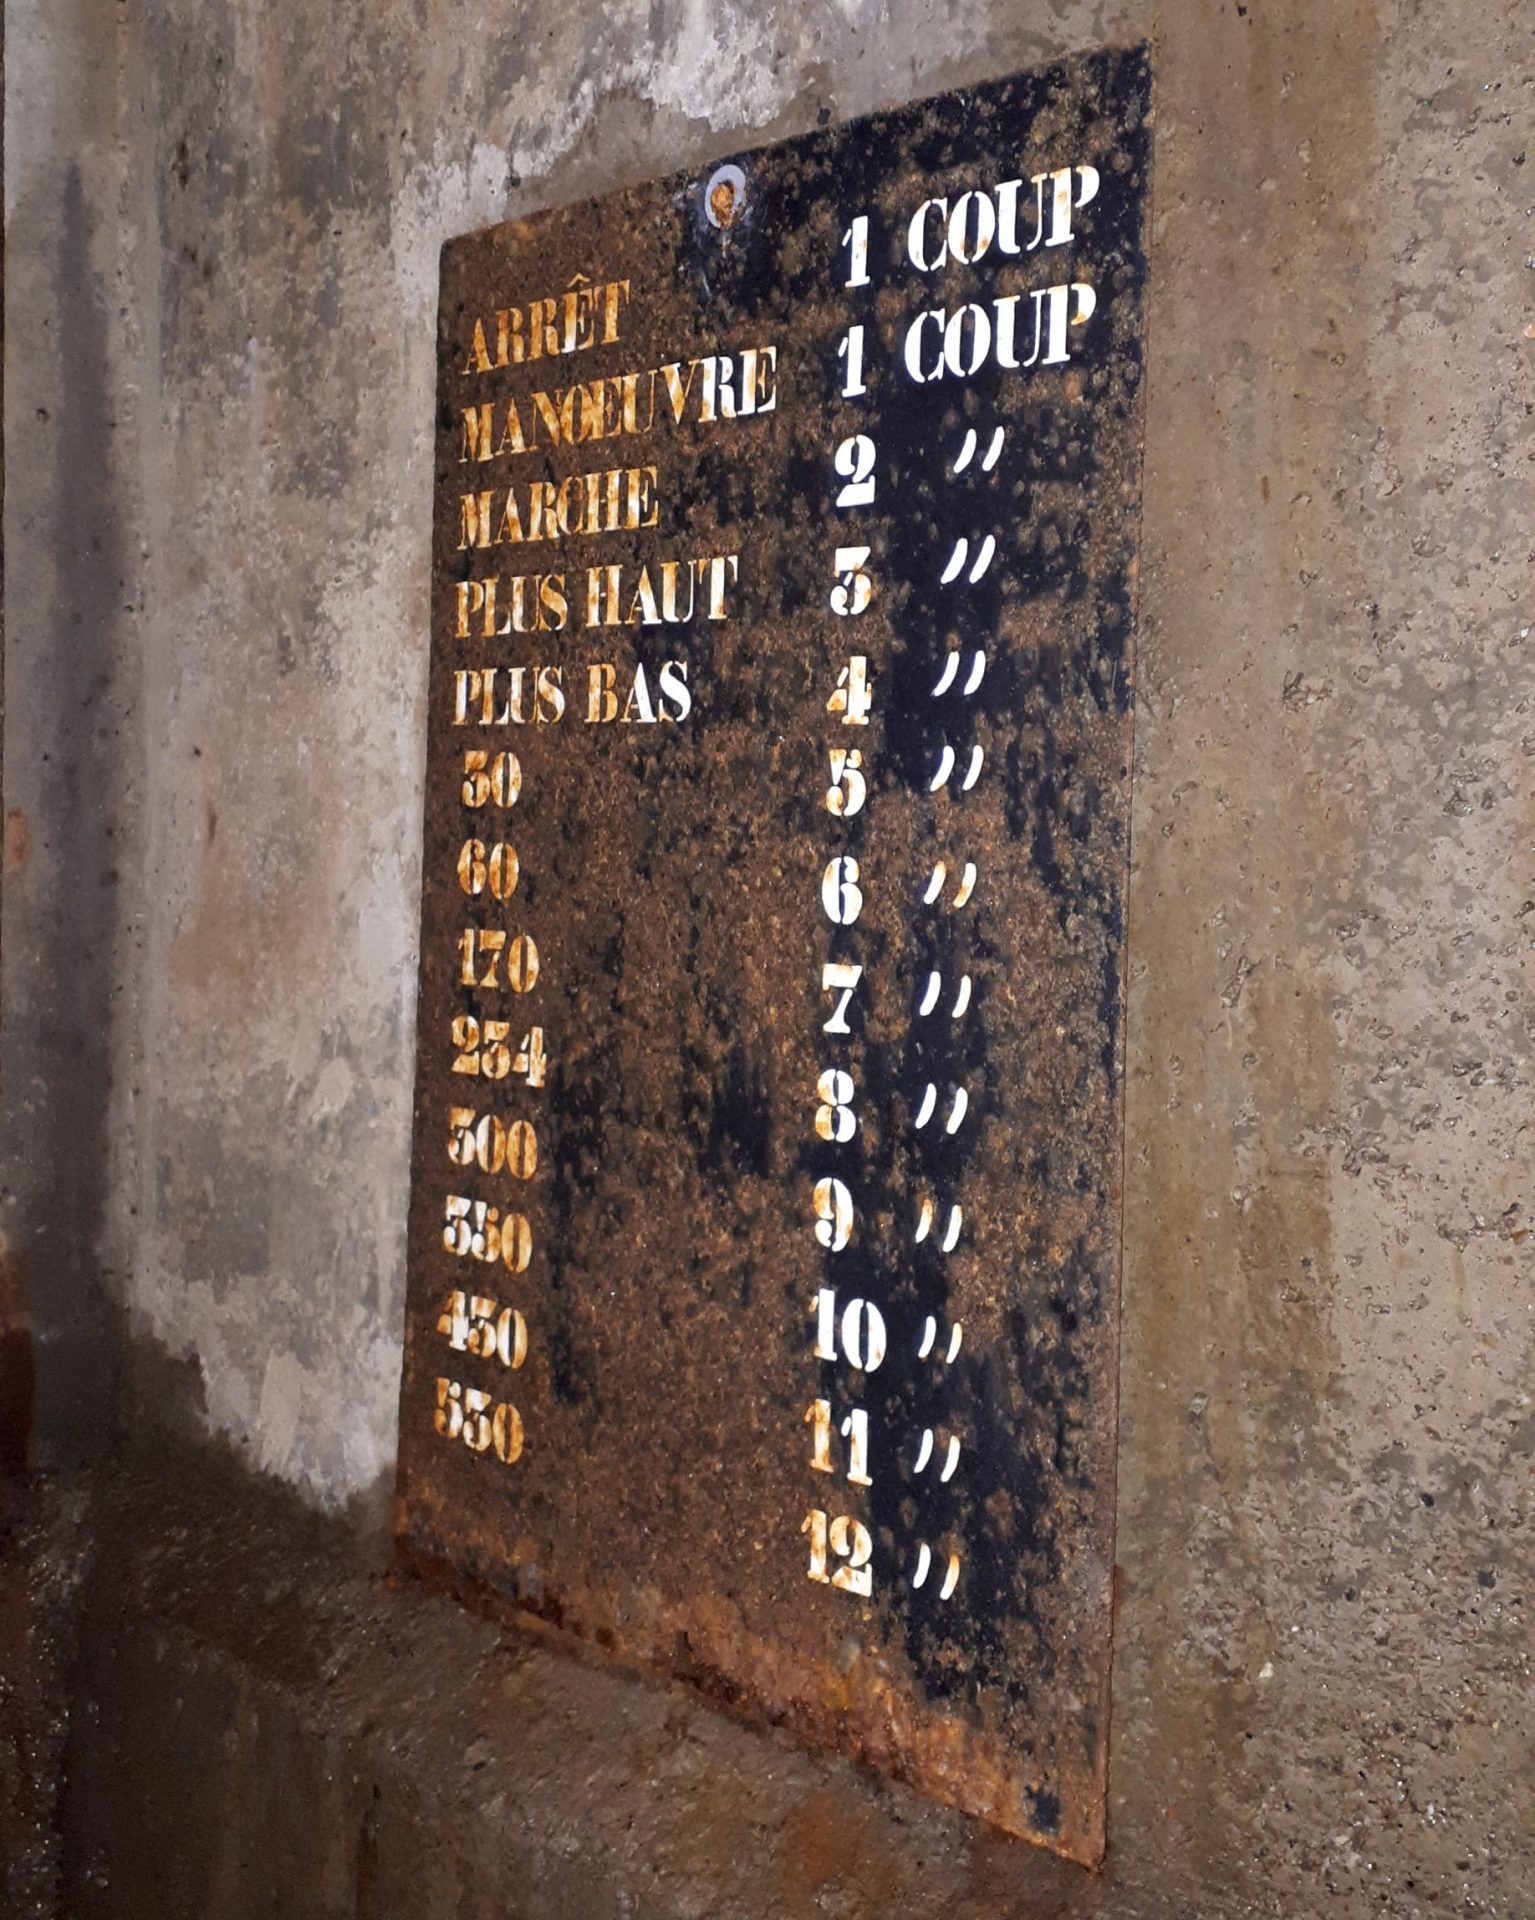 ARRÊT 1 COUP
MANOEUVRE 1 COUP
MARCHE 2 〃
PLUS HAUT 3 〃
PLUS BAS 4 〃
30 5 〃
60 6 〃
170 7 〃
234 8 〃
300 9 〃
350 10 〃
430 11 〃
530 12 〃